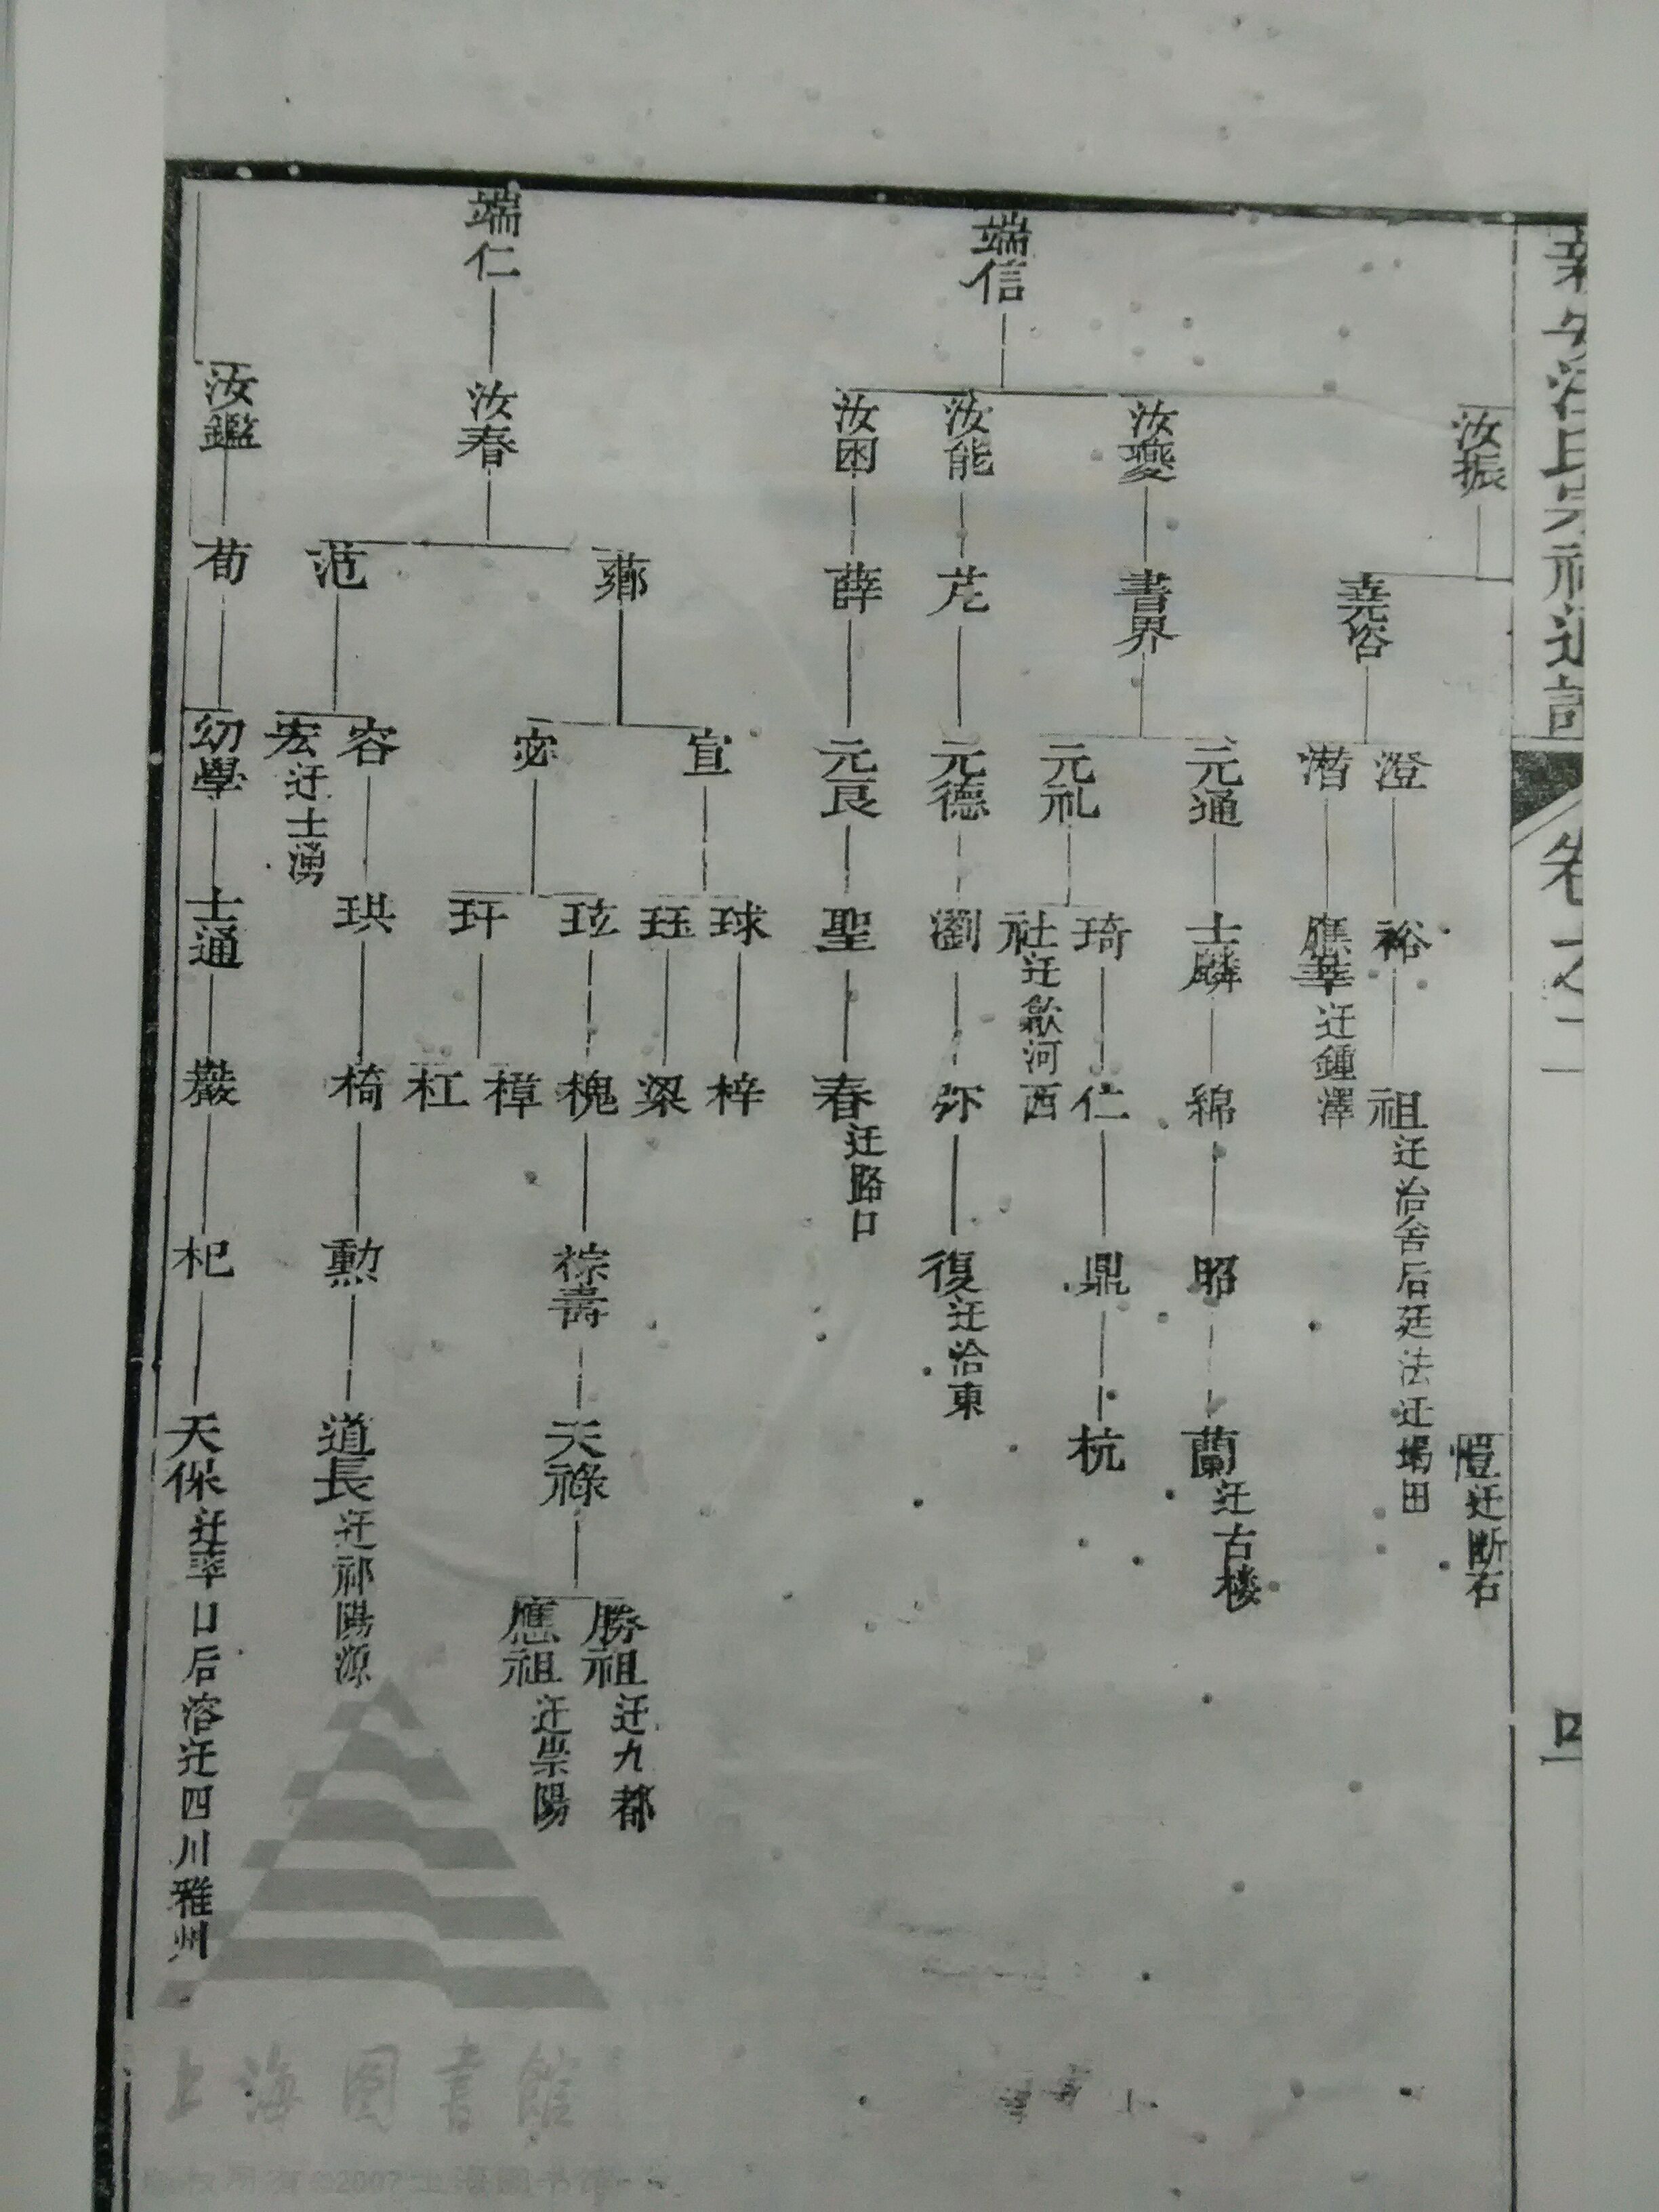 汝振
端信
汝燮
汝能
汝困
端仁
汝春
汝鑑
堯咨
書界
芘
薛
薌
范
荀
愷迁断石
澄
潛
元通
元礼
元德
元良
宣
宓
容
宏迁士湧
幼學
裕
應華迁鍾澤
士麟
琦
社迁歙河西
瀏
聖
球
珏
玹
玕
珙
士通
祖迁治舍后廷法迁塌田
綿
仁
弥
春迁路口
梓
梁
槐
樟
杠
椅
巖
昭
鼎
復迁治東
棕壽
勲
杞
蘭迁古楼
杭
天祿
道長迁祁陽源
天保迁率口后溶迁四川雅州
勝祖迁九都
應祖迁崇陽
卷之二
四
上海圖書館